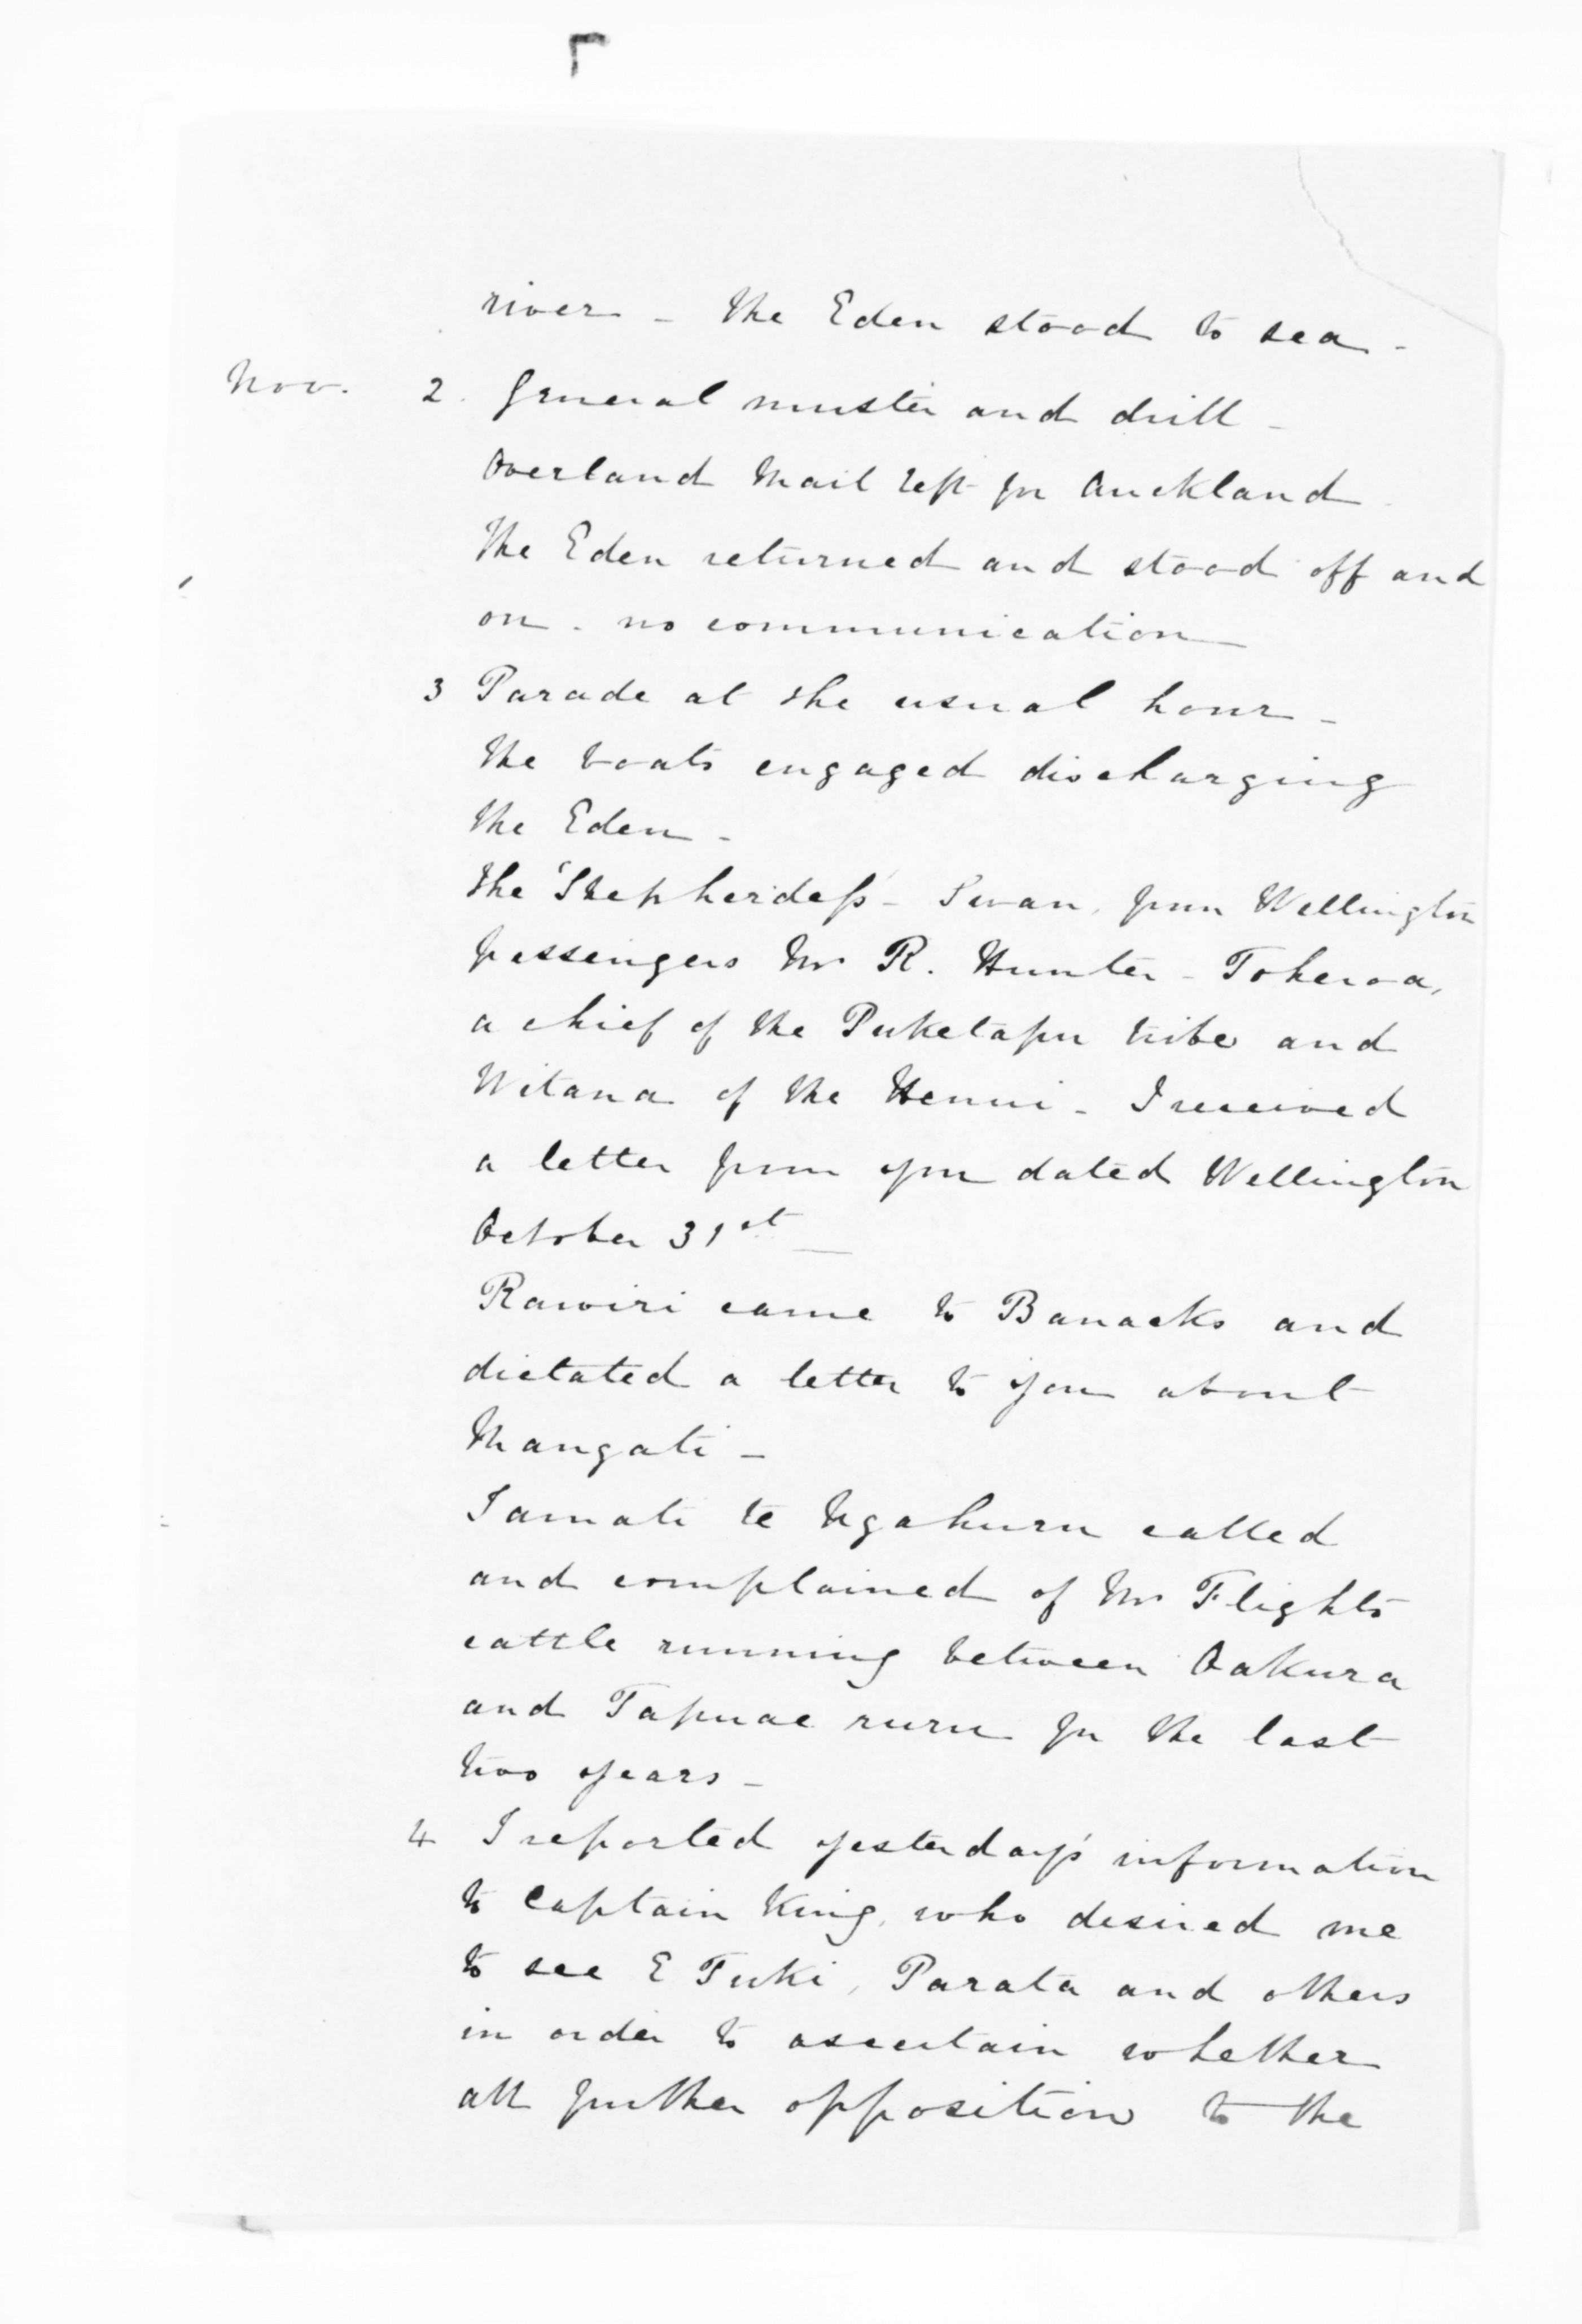 river - The Eden stood to sea -
Nov. 2. General muster and drill -
Overland Mail left for Auckland.
The Eden returned and stood off and
on. no communication
3 Parade at the usual hour -
The boats engaged discharging
the Eden -
The 'Shepherdess' - Swan, from Wellington
passengers Mr R. Hunter - Toheroa,
a chief of the Puketapu tribe and
Witana of the Henui - I received
a letter from you dated Wellington
October 31st
Rawiri came to Barracks and
dictated a letter to you about
Mangati -
Tamati te Ngahuru called
and complained of Mr Flights
cattle running between Oakura
and Tapuae ruru for the last
two years -
4 I reported yesterday's information
to Captain King, who desired me
to see E Tuki, Parata and others
in order to ascertain whether
all further opposition to the